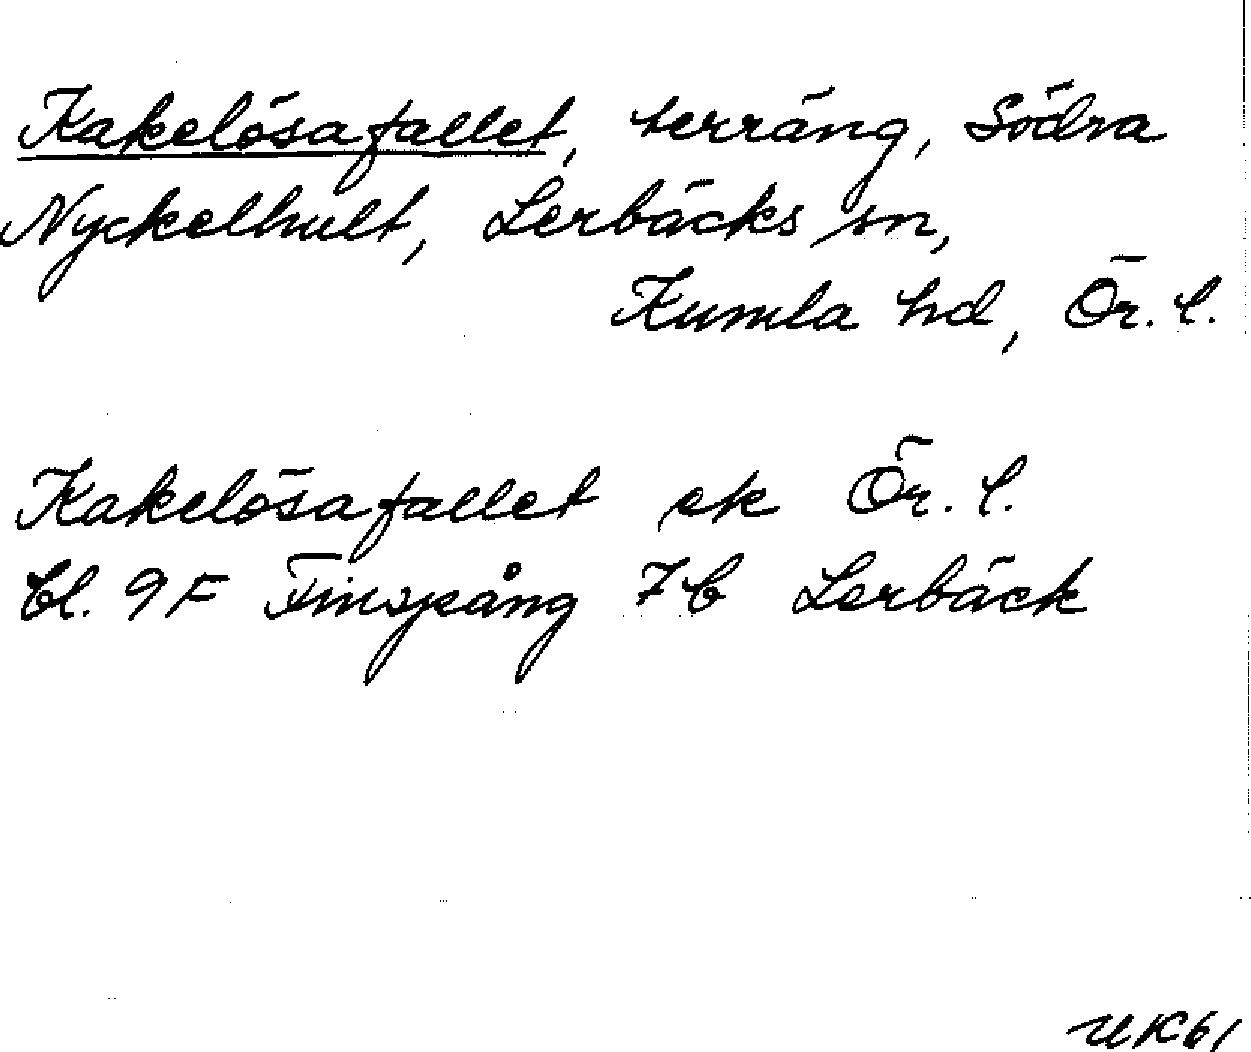 Kakelösafallet, terräng, Södra
Nyckelhult, Lerbäcks sn,
Kumla hd, Ör. l.
Kakelösafallet ek Ör. l.
bl. 9F Finspång 7b Lerbäck
UK61